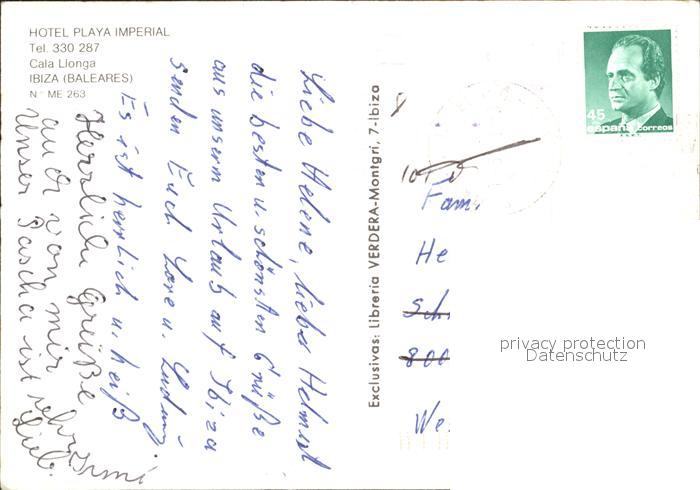 HOTEL PLAYA IMPERIAL
Tel. 330 287
Cala Llonga
IBIZA (BALEARES)
N° ME 263
Liebe Helene, lieber Helmut
die besten u. schönsten Grüße
aus unserm Urlaub auf Ibiza
senden Euch Lore u. Ludwig.
Es ist herrlich u. heiß
Herrliche Grüße
auch von mir
Unser Pascha ist sehr
lieb.
Exclusivas: Libreria VERDERA-Montgrí, 7-Ibiza
45
españa correos
Fam.
He
Sch
800
We
privacy protection
Datenschutz